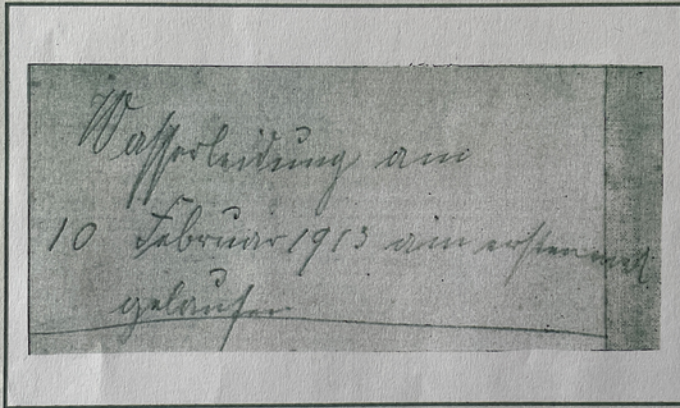 Wasserleidung am
10 Februar 1913 am erstenmal
gelaufen